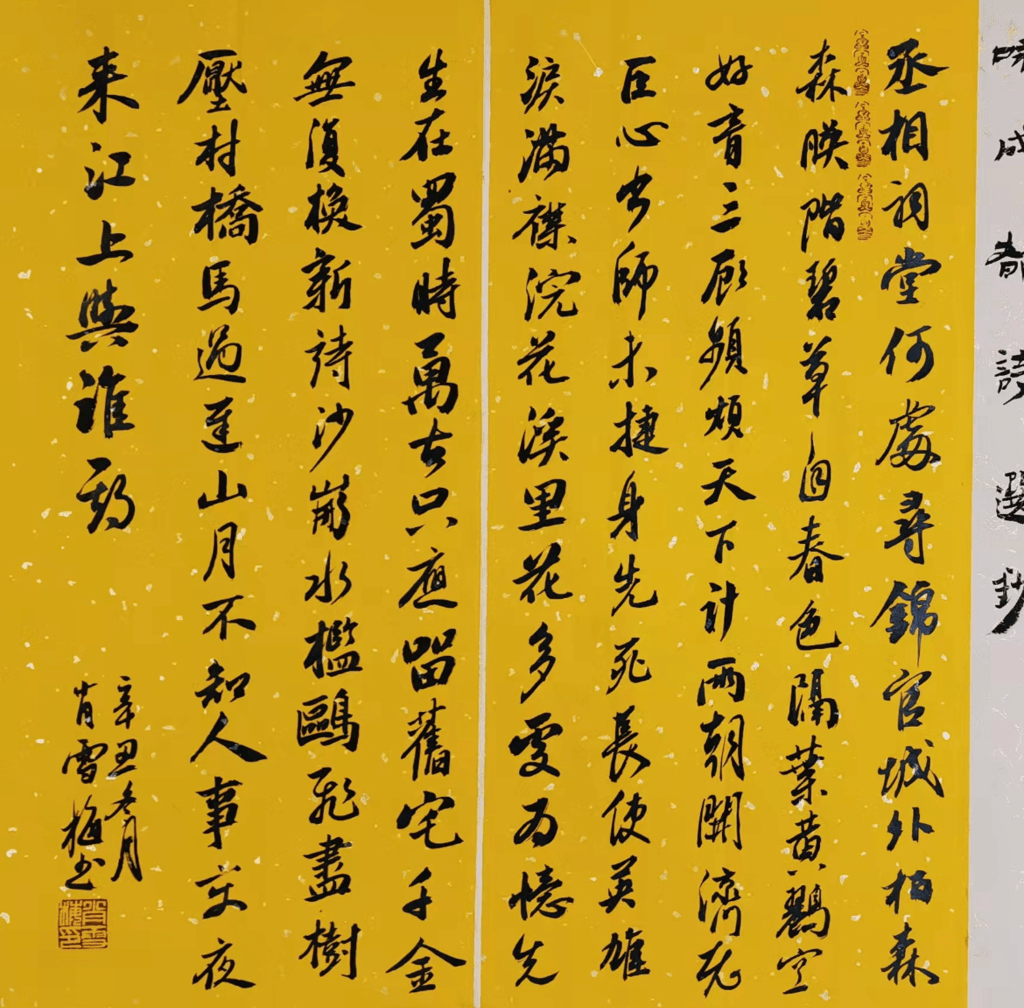 咏成都詩選鈔
丞相祠堂何處尋錦官城外柏森
森映階碧草自春色隔葉黄鸝空
好音三顾頻煩天下計兩朝開濟老
臣心出師未捷身先死長使英雄
淚滿襟浣花溪里花多處为憶先
生在蜀時萬古只應留舊宅千金
無復換新詩沙崩水檻鷗飛盡樹
壓村橋馬過遲山月不知人事变夜
来江上與誰期
辛丑冬月
肖雪梅书
肖雪梅印